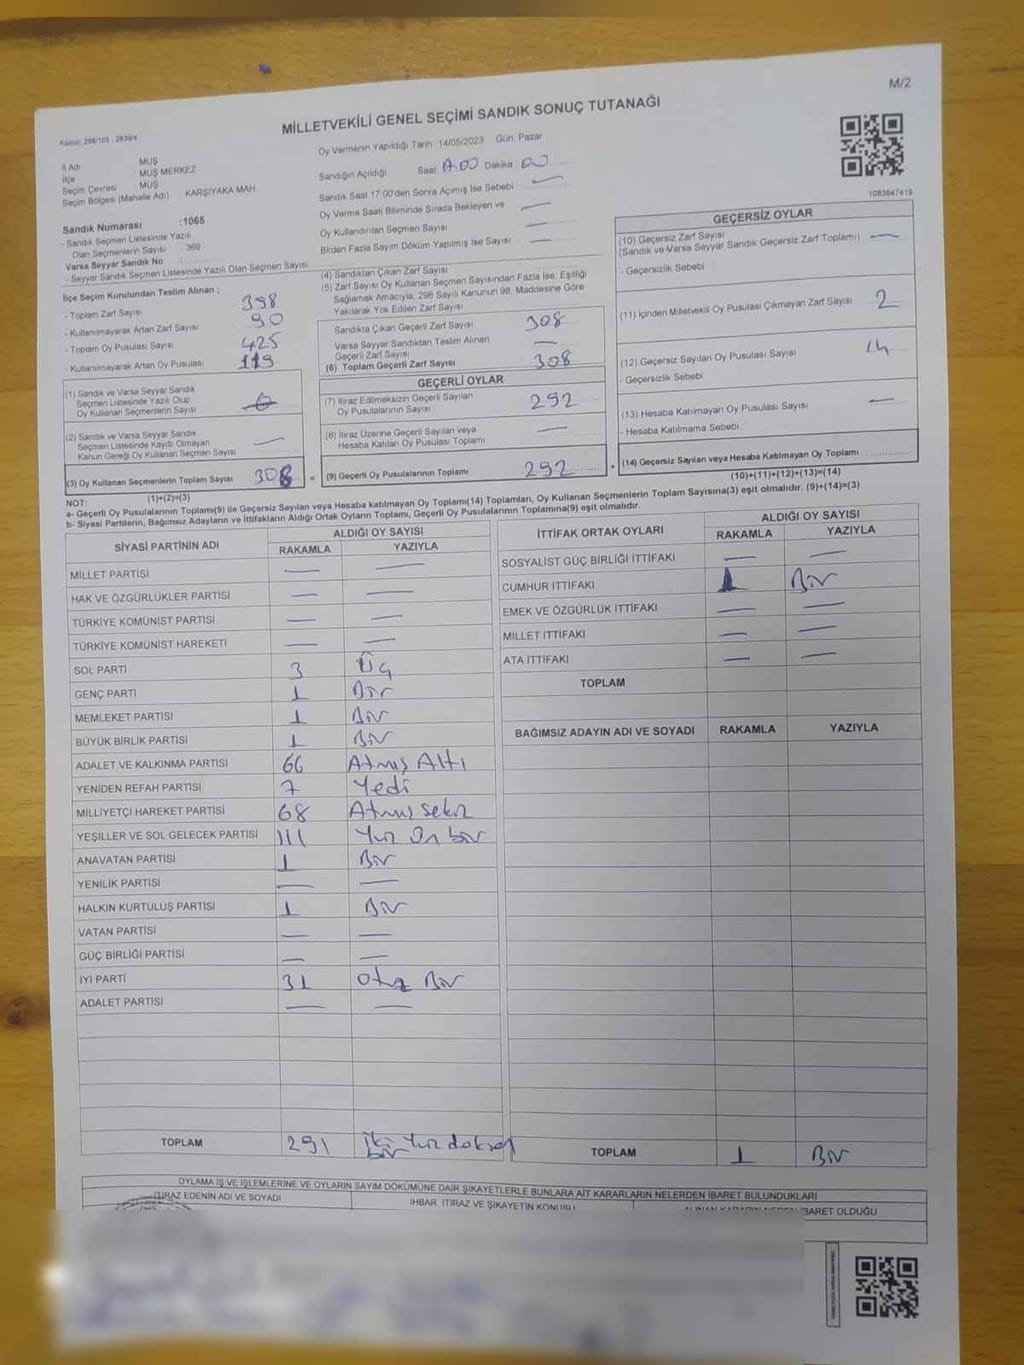 M/2
MİLLETVEKİLİ GENEL SEÇİMİ SANDIK SONUÇ TUTANAĞI
Kanun: 298/105 , 2839/4
İl Adı MUŞ
İlçe MUŞ MERKEZ
Seçim Çevresi MUŞ
Seçim Bölgesi (Mahalle Adı) KARŞIYAKA MAH.
Sandık Numarası :1065
- Sandık Seçmen Listesinde Yazılı
Olan Seçmenlerin Sayısı : 369
Varsa Seyyar Sandık No :
- Seyyar Sandık Seçmen Listesinde Yazılı Olan Seçmen Sayısı
İlçe Seçim Kurulundan Teslim Alınan ;
- Toplam Zarf Sayısı 398
- Kullanılmayarak Artan Zarf Sayısı 90
- Toplam Oy Pusulası Sayısı 425
- Kullanılmayarak Artan Oy Pusulası 119
(1) Sandık ve Varsa Seyyar Sandık
Seçmen Listesinde Yazılı Olup
Oy Kullanan Seçmenlerin Sayısı
(2) Sandık ve Varsa Seyyar Sandık
Seçmen Listesinde Kayıtlı Olmayan
Kanun Gereği Oy Kullanan Seçmen Sayısı —
(3) Oy Kullanan Seçmenlerin Toplam Sayısı 308
(1)+(2)=(3)
Oy Vermenin Yapıldığı Tarih : 14/05/2023 Gün: Pazar
Sandığın Açıldığı Saat: 17.00 Dakika 00
Sandık Saat 17:00'den Sonra Açılmış İse Sebebi —
Oy Verme Saati Bitiminde Sırada Bekleyen ve —
Oy Kullandırılan Seçmen Sayısı —
Birden Fazla Sayım Döküm Yapılmış İse Sayısı —
(4) Sandıktan Çıkan Zarf Sayısı
(5) Zarf Sayısı Oy Kullanan Seçmen Sayısından Fazla İse, Eşitliği
Sağlamak Amacıyla, 298 Sayılı Kanunun 98. Maddesine Göre
Yakılarak Yok Edilen Zarf Sayısı
Sandıkta Çıkan Geçerli Zarf Sayısı 308
Varsa Seyyar Sandıktan Teslim Alınan
Geçerli Zarf Sayısı —
(6) Toplam Geçerli Zarf Sayısı 308
GEÇERLİ OYLAR
(7) İtiraz Edilmeksizin Geçerli Sayılan
Oy Pusulalarının Sayısı 292
(8) İtiraz Üzerine Geçerli Sayılan veya
Hesaba Katılan Oy Pusulası Toplamı —
= (9) Geçerli Oy Pusulalarının Toplamı 292 +
1083847419
GEÇERSİZ OYLAR
(10) Geçersiz Zarf Sayısı
(Sandık ve Varsa Seyyar Sandık Geçersiz Zarf Toplamı) —
- Geçersizlik Sebebi
(11) İçinden Milletvekili Oy Pusulası Çıkmayan Zarf Sayısı 2
(12) Geçersiz Sayılan Oy Pusulası Sayısı 14
- Geçersizlik Sebebi
(13) Hesaba Katılmayan Oy Pusulası Sayısı —
- Hesaba Katılmama Sebebi :
(14) Geçersiz Sayılan veya Hesaba Katılmayan Oy Toplamı
(10)+(11)+(12)+(13)=(14)
NOT:
a- Geçerli Oy Pusulalarının Toplamı(9) ile Geçersiz Sayılan veya Hesaba katılmayan Oy Toplamı(14) Toplamları, Oy Kullanan Seçmenlerin Toplam Sayısına(3) eşit olmalıdır. (9)+(14)=(3)
b- Siyasi Partilerin, Bağımsız Adayların ve İttifakların Aldığı Ortak Oyların Toplamı, Geçerli Oy Pusulalarının Toplamına(9) eşit olmalıdır.
SİYASİ PARTİNİN ADI ALDIĞI OY SAYISI
RAKAMLA YAZIYLA
MİLLET PARTİSİ — —
HAK VE ÖZGÜRLÜKLER PARTİSİ — —
TÜRKİYE KOMÜNİST PARTİSİ — —
TÜRKİYE KOMÜNİST HAREKETİ — —
SOL PARTİ 3 Üç
GENÇ PARTİ 1 Bir
MEMLEKET PARTİSİ 1 Bir
BÜYÜK BİRLİK PARTİSİ 1 Bir
ADALET VE KALKINMA PARTİSİ 66 Atmış Altı
YENİDEN REFAH PARTİSİ 7 Yedi
MİLLİYETÇİ HAREKET PARTİSİ 68 Atmış Sekiz
YEŞİLLER VE SOL GELECEK PARTİSİ 111 Yüz On bir
ANAVATAN PARTİSİ 1 Bir
YENİLİK PARTİSİ — —
HALKIN KURTULUŞ PARTİSİ 1 Bir
VATAN PARTİSİ — —
GÜÇ BİRLİĞİ PARTİSİ — —
İYİ PARTİ 31 Otuz Bir
ADALET PARTİSİ — —
TOPLAM 291 İki Yüz doksan bir
İTTİFAK ORTAK OYLARI ALDIĞI OY SAYISI
RAKAMLA YAZIYLA
SOSYALİST GÜÇ BİRLİĞİ İTTİFAKI — —
CUMHUR İTTİFAKI 1 Bir
EMEK VE ÖZGÜRLÜK İTTİFAKI — —
MİLLET İTTİFAKI — —
ATA İTTİFAKI — —
TOPLAM
BAĞIMSIZ ADAYIN ADI VE SOYADI RAKAMLA YAZIYLA
TOPLAM 1 Bir
OYLAMA İŞ VE İŞLEMLERİNE VE OYLARIN SAYIM DÖKÜMÜNE DAİR ŞİKAYETLERLE BUNLARA AİT KARARLARIN NELERDEN İBARET BULUNDUKLARI
İTİRAZ EDENİN ADI VE SOYADI
İHBAR, İTİRAZ VE ŞİKAYETİN KONUSU
ALINAN KARARIN NEDEN İBARET OLDUĞU